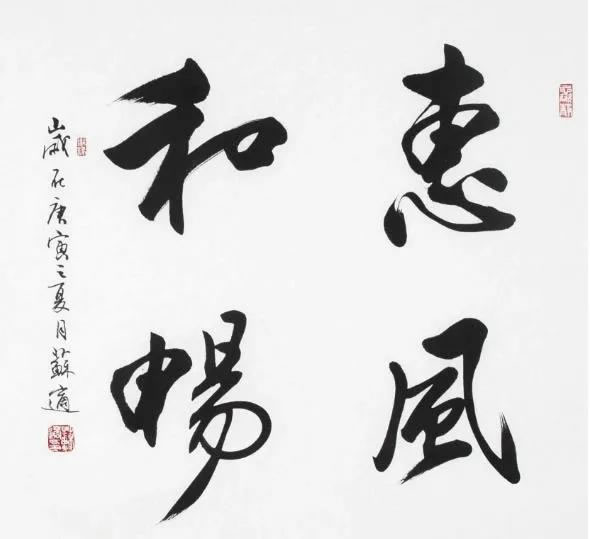 惠風
和暢
歲在庚寅之夏月蘇適